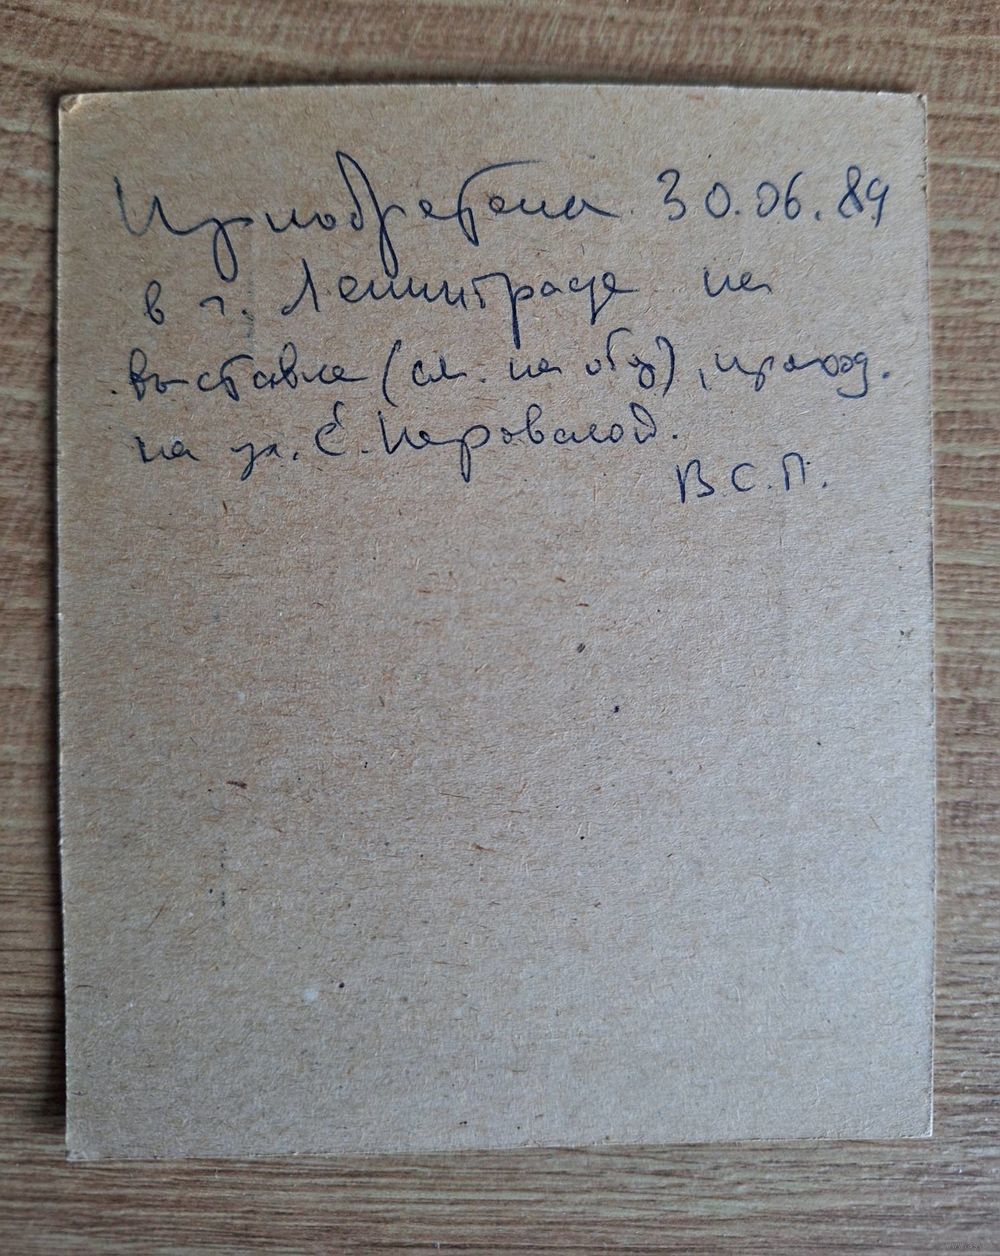 Приобретена 30.06.89
в г. Ленинграде на
выставке (см. на об.), проход.
на ул. С. Перовской.
В.С.П.